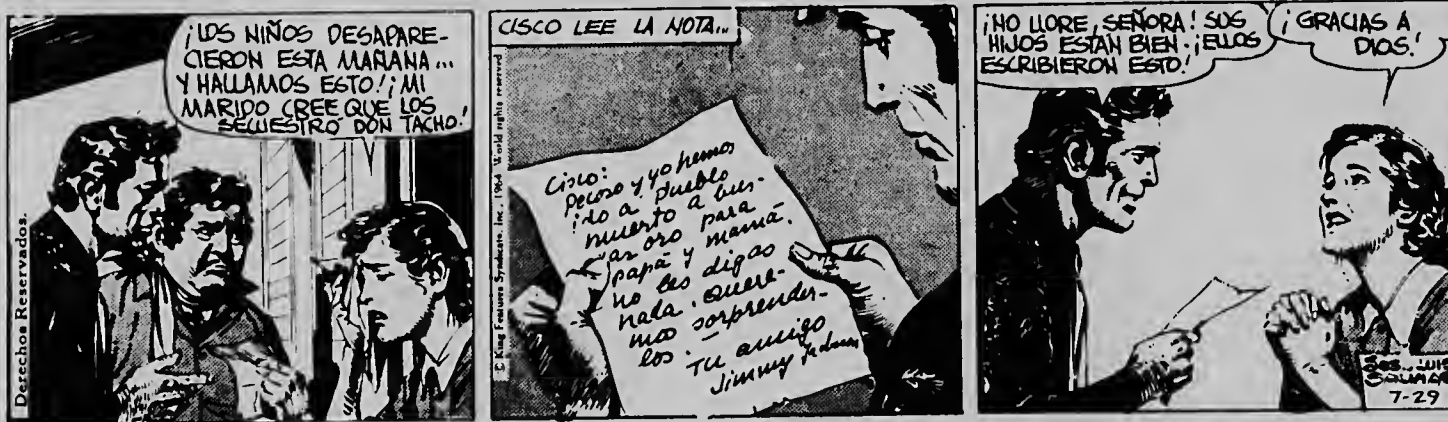 ¡LOS NIÑOS DESAPARE-
CIERON ESTA MAÑANA...
Y HALLAMOS ESTO! ¡MI
MARIDO CREE QUE LOS
SECUESTRO DON TACHO!
Derechos Reservados.
CISCO LEE LA NOTA...
© King Features Syndicate, Inc., 1964. World rights reserved
Cisco:
Pecoso y yo hemos
ido a pueblo
muerto a bus-
ar oro para
papá y mamá.
no les digas
nada. Quere-
mos sorprender-
los.
Tu amigo
Jimmy
¡NO LLORE, SEÑORA! SUS
HIJOS ESTAN BIEN. ¡ELLOS
ESCRIBIERON ESTO!
¡GRACIAS A
DIOS!
7-29